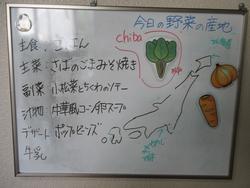 今日の野菜の産地
chiba
主食、ごはん
主菜 さばのごまみそ焼き
副菜 小松菜とちくわのソテー
汁物 中華風コーン卵スープ
デザート ポップビーンズ
牛乳